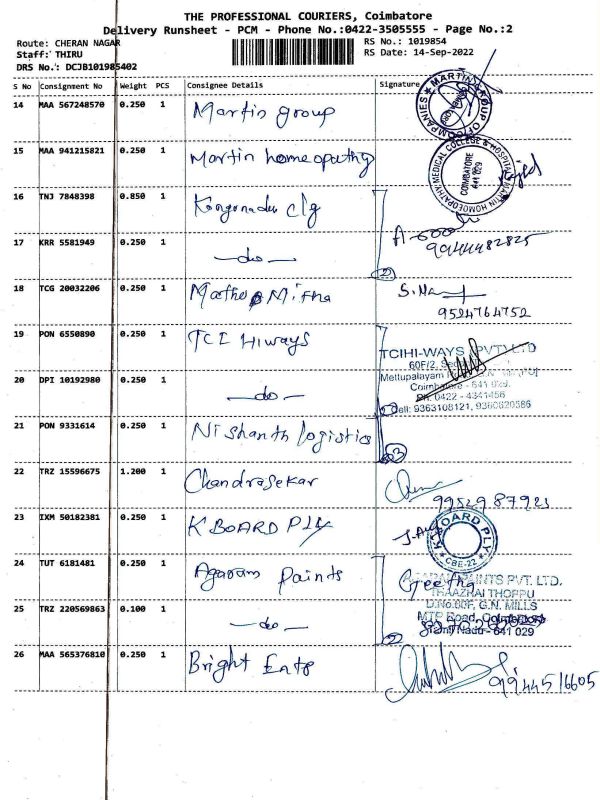 THE PROFESSIONAL COURIERS, Coimbatore
Delivery Runsheet - PCM - Phone No.:0422-3505555 - Page No.:2
Route: CHERAN NAGAR RS No.: 1019854
Staff: THIRU RS Date: 14-Sep-2022
DRS No.: DCJB101985402
S No Consignment No Weight PCS Consignee Details Signature
14 MAA 567248570 0.250 1 Martin group
MARTIN GROUP OF COMPANIES
15 MAA 941215821 0.250 1 Martin homeopathy
MARTIN HOMOEOPATHY MEDICAL COLLEGE & HOSPITAL
COIMBATORE
641 029
16 TNJ 7848398 0.850 1 Kongunadu clg
17 KRR 5581949 0.250 1 —do—
9944482825
18 TCG 20032206 0.250 1
9524764752
19 PON 6550890 0.250 1 TCI Hiways
TCIHI-WAYS (PVT) LTD
60F/2,
20 DPI 10192980 0.250 1 —do—
Mettupalayam
Coimbatore - 641 029.
Ph: 0422 - 4341456
Cell: 9363108121,
21 PON 9331614 0.250 1 Nishanth logistics
22 TRZ 15596675 1.200 1 Chandrasekar
23 IXM 50182381 0.250 1 K BOARD PLY
K BOARD PLY
CBE-22
24 TUT 6181481 0.250 1 Agaram Paints
Geetha
PAINTS PVT. LTD.
THAAZHAI THOPPU
25 TRZ 220569863 0.100 1 —do—
D.No.60F, G.N. MILLS
MTP Road, Coimbatore
Tamil Nadu - 641 029
26 MAA 565376810 0.250 1 Bright Eats
9944516605